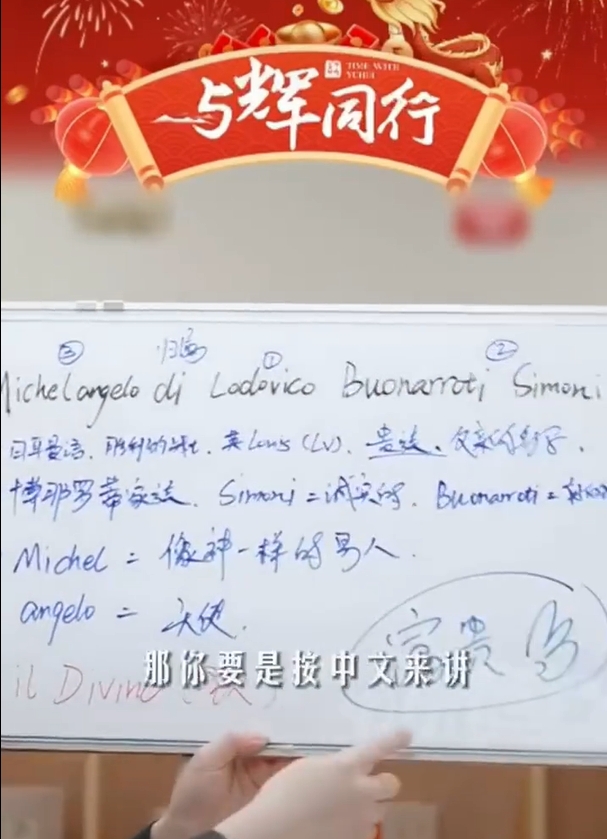 与辉同行
TIME WITH
YUHUI
③ 归属 ① ②
Michelangelo di Lodovico Buonarroti Simoni
日耳曼语. 胜利的战士. 英Louis (LV). 贵族. 父亲的名字.
博那罗蒂家族. Simoni = 诚实的. Buonarroti =
Michel = 像神一样的男人.
angelo = 天使.
富贵
那你要是按中文来讲
il Divino